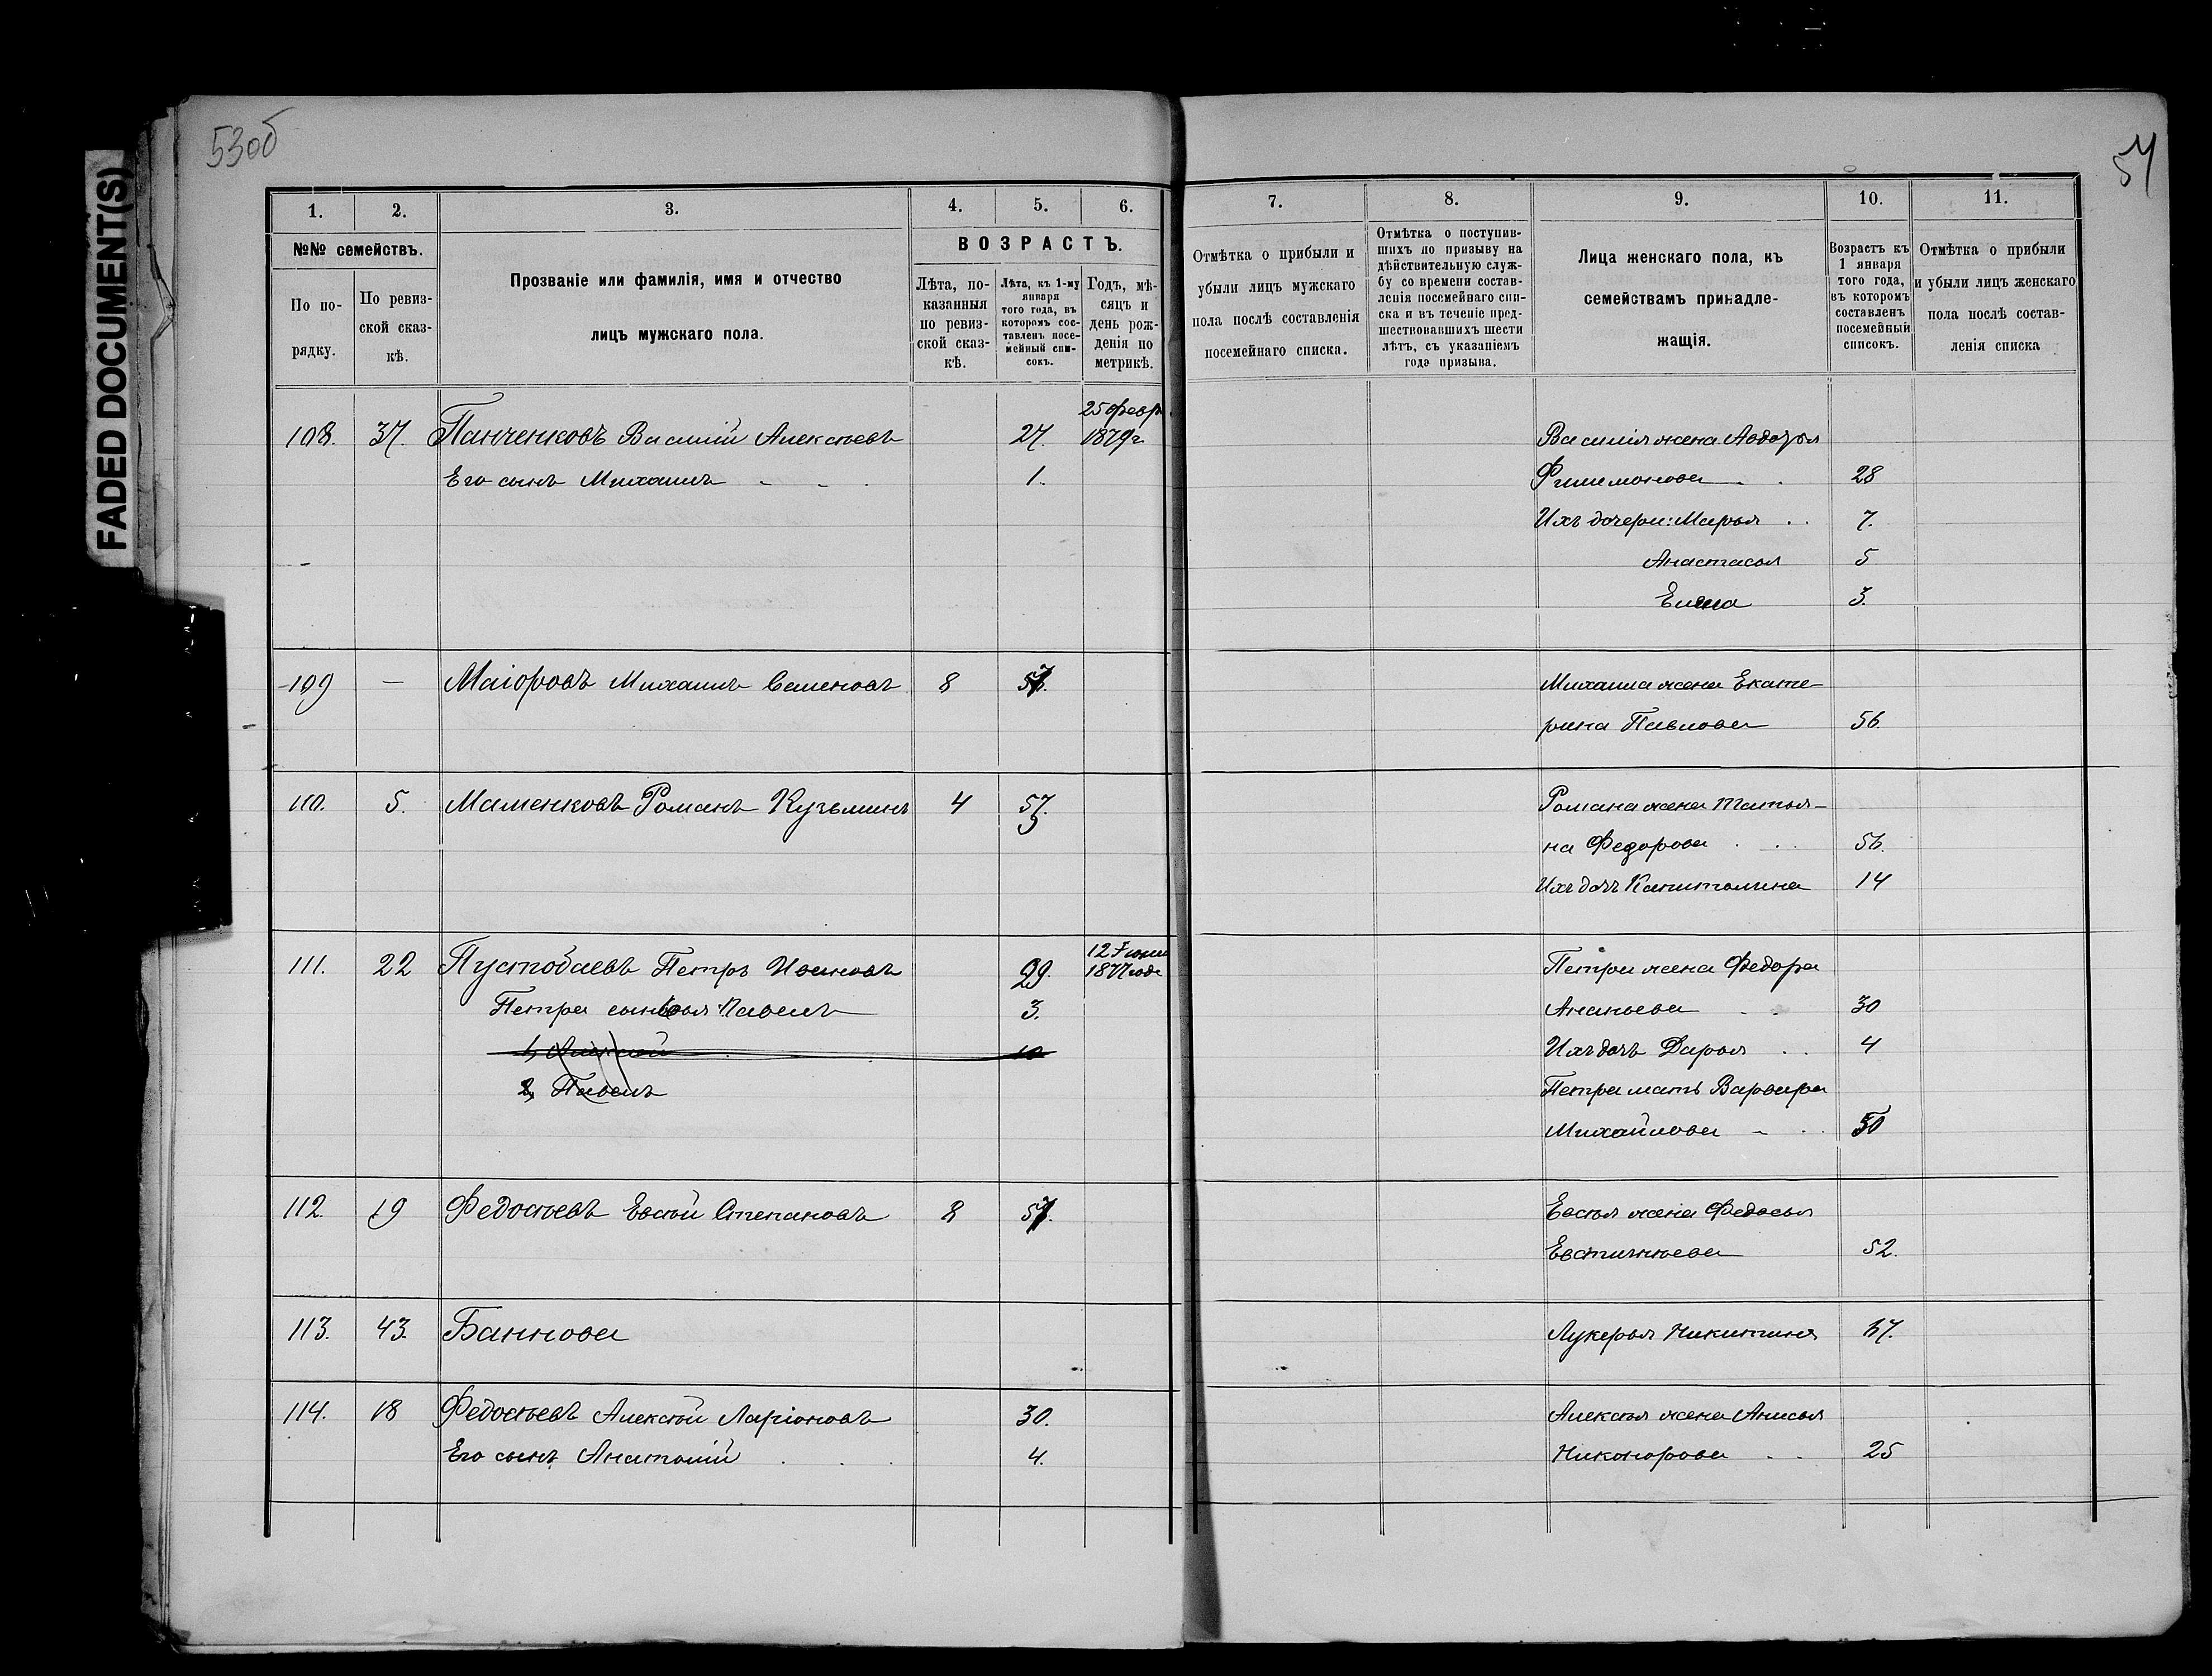 53об
54
FADED DOCUMENT(S)
1. 2. 3. 4. 5. 6. 7. 8. 9. 10. 11.
№№ семействъ.
По по-
рядку.
По ревиз-
ской сказ-
кѣ.
Прозваніе или фамилія, имя и отчество
лицъ мужскаго пола.
ВОЗРАСТЪ.
Лѣта, по-
казанныя
по ревиз-
ской сказ-
кѣ.
Лѣта, къ 1-му
января
того года, въ
которомъ сос-
тавленъ посе-
мейный спи-
сокъ.
Годъ, мѣ-
сяцъ и
день рож-
денія по
метрикѣ.
Отмѣтка о прибыли и
убыли лицъ мужскаго
пола послѣ составленія
посемейнаго списка.
Отмѣтка о поступив-
шихъ по призыву на
дѣйствительную служ-
бу со времени состав-
ленія посемейнаго спи-
ска и въ теченіе пред-
шествовавшихъ шести
лѣтъ, съ указаніемъ
года призыва.
Лица женскаго пола, къ
семействамъ принадле-
жащія.
Возрастъ къ
1 января
того года,
въ которомъ
составленъ
посемейный
списокъ.
Отмѣтка о прибыли
и убыли лицъ женскаго
пола послѣ состав-
ленія списка
25 февр.
108. 37. Панченковъ Василій Алексѣевъ 27. 1879г Василія жена Авдотья
Его сынъ Михаилъ 1. Филимонова 28
Ихъ дочери: Марья 7.
Анастасья 5
Елена 3.
109 — Маіоровъ Михаилъ Семеновъ 8 Михаила жена Екате-
рина Павлова 56.
110. 5. Маменковъ Романъ Кузьминъ 4 57. Романа жена Татья-
на Федорова 56.
Ихъ дочь Капитолина 14
12 Іюня
111. 22 Пустобаевъ Петръ Ивановъ 29. 1877 года Петра жена Федора
Петра сыновья Павелъ 3. Ананьева 30
1, Алексѣй 10 Ихъ дочь Дарья 4
2, Павелъ Петра мать Варвара
Михайлова 50
112. 19 Федосѣевъ Евсѣй Степановъ 8 Евсѣя жена Федосья
Евстигнѣева 52.
113. 43. Баннова Лукерья Никитина 67.
114. 18 Федосѣевъ Алексѣй Ларіоновъ 30. Алексѣя жена Анисья
Его сынъ Анатолій 4. Никонорова 25